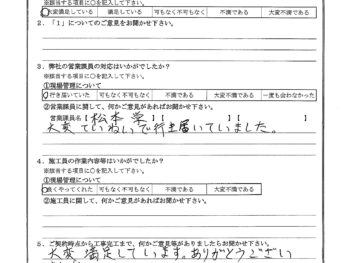 ※該当する項目に○を記入して下さい。
大変満足している 満足している 可もなく不可もなく 不満である 大変不満である
2.「1」についてのご意見をお聞かせ下さい。
3.弊社の営業課員の対応はいかがでしたか?
※該当する項目に○を記入して下さい。
①現場管理について
行き届いていた 可もなく不可もなく 不満である 大変不満である 一度も会わなかった
②営業課員に関して、何かご意見があればお聞かせ下さい。
営業課員名【松本 】【 】【 】
大変ていねいで行き届いていました。
4.施工員の作業内容等はいかがでしたか?
※該当する項目に○を記入して下さい。
①現場管理について
良くやってくれた 可もなく不可もなく 不満である 大変不満である
②施工員に関して、何かご意見があればお聞かせ下さい。
5.ご契約時点から工事完工まで、何かご意見等がありましたらお聞かせ下さい。
大変満足しています。ありがとうござい